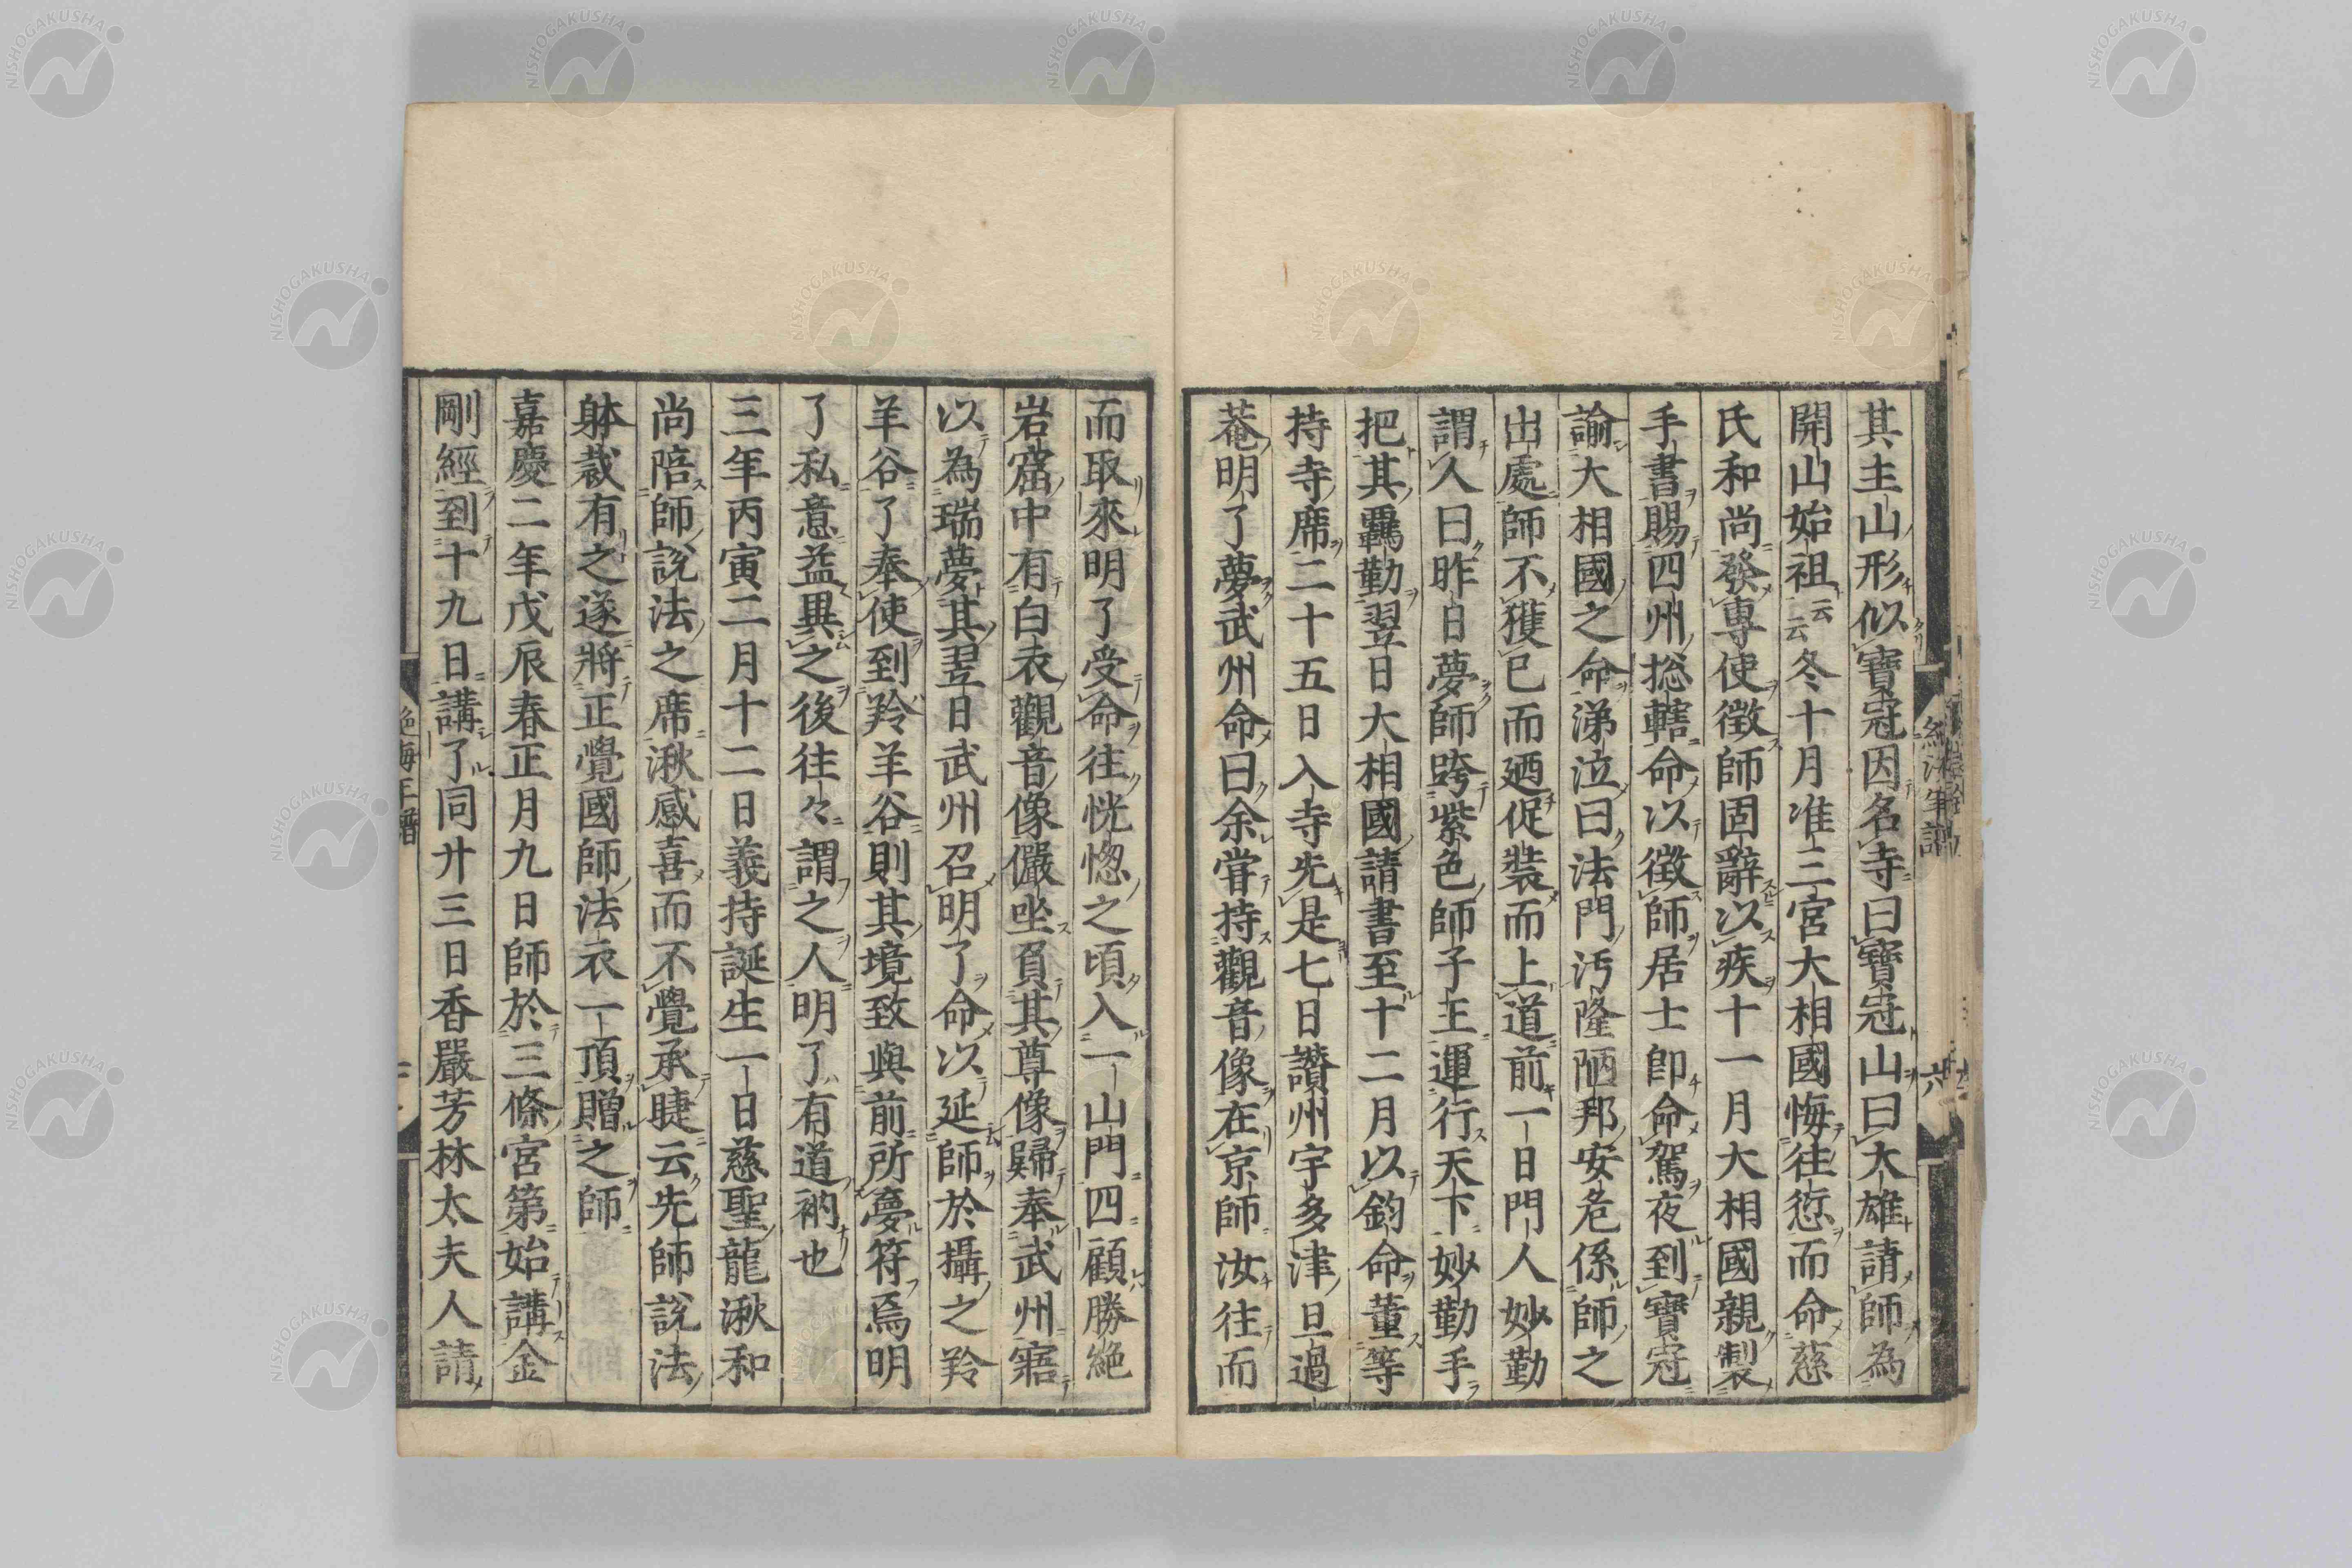 其主山形似寶冠因名寺曰寶冠山曰大雄請師為
開山始祖云云冬十月准三宮大相國悔往愆而命慈
氏和尚發專使徵師固辭以疾十一月大相國親製
手書賜四州捴轄命以徵師居士卽命駕夜到寶冠
諭大相國之命涕泣曰法門汚隆陋邦安危係師之
出處師不獲已而廼促裝而上道前一日門人妙勤
謂人曰昨日夢師跨紫色師子王運行天下妙勤手
把其羈勒翌日大相國請書至十二月以鈞命董等
持寺席二十五日入寺先是七日讚州宇多津旦過
菴明了夢武州命曰余甞持觀音像在京師汝往而
而取來明了受命往恍惚之頃入一山門四顧勝絶
岩窟中有白衣觀音像儼坐負其尊像歸奉武州寤
以為瑞夢其翌日武州召明了命以延師於攝之羚
羊谷了奉使到羚羊谷則其境致與前所夢符焉明
了私意益異之後往々謂之人明了有道衲也
三年丙寅二月十二日義持誕生一日慈聖龍湫和
尚陪師說法之席湫感喜而不覺承睫云先師說法
躰裁有之遂將正覺國師法衣一頂贈之師
嘉慶二年戊辰春正月九日師於三條宮第始講金
剛經到十九日講了同廾三日香嚴芳林太夫人請
絶海年譜
NISHOGAKUSHA